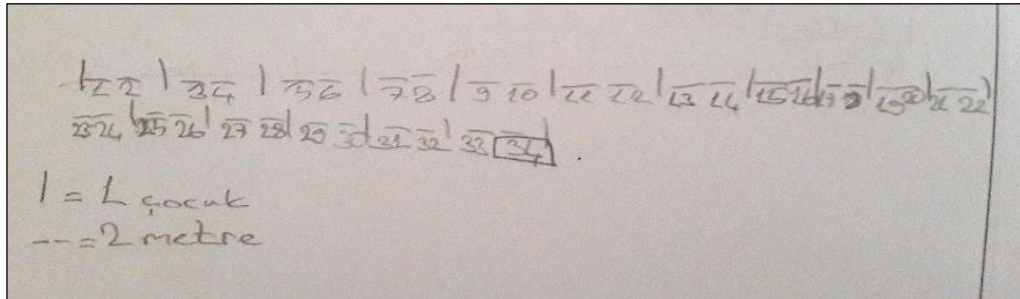 | 1 2 | 3 4 | 5 6 | 7 8 | 9 10 | 11 12 | 13 14 | 15 16 | 17 18 | 19 20 | 21 22 |
23 24 | 25 26 | 27 28 | 29 30 | 31 32 | 33 34 | .
| = 1 çocuk
-- = 2 metre